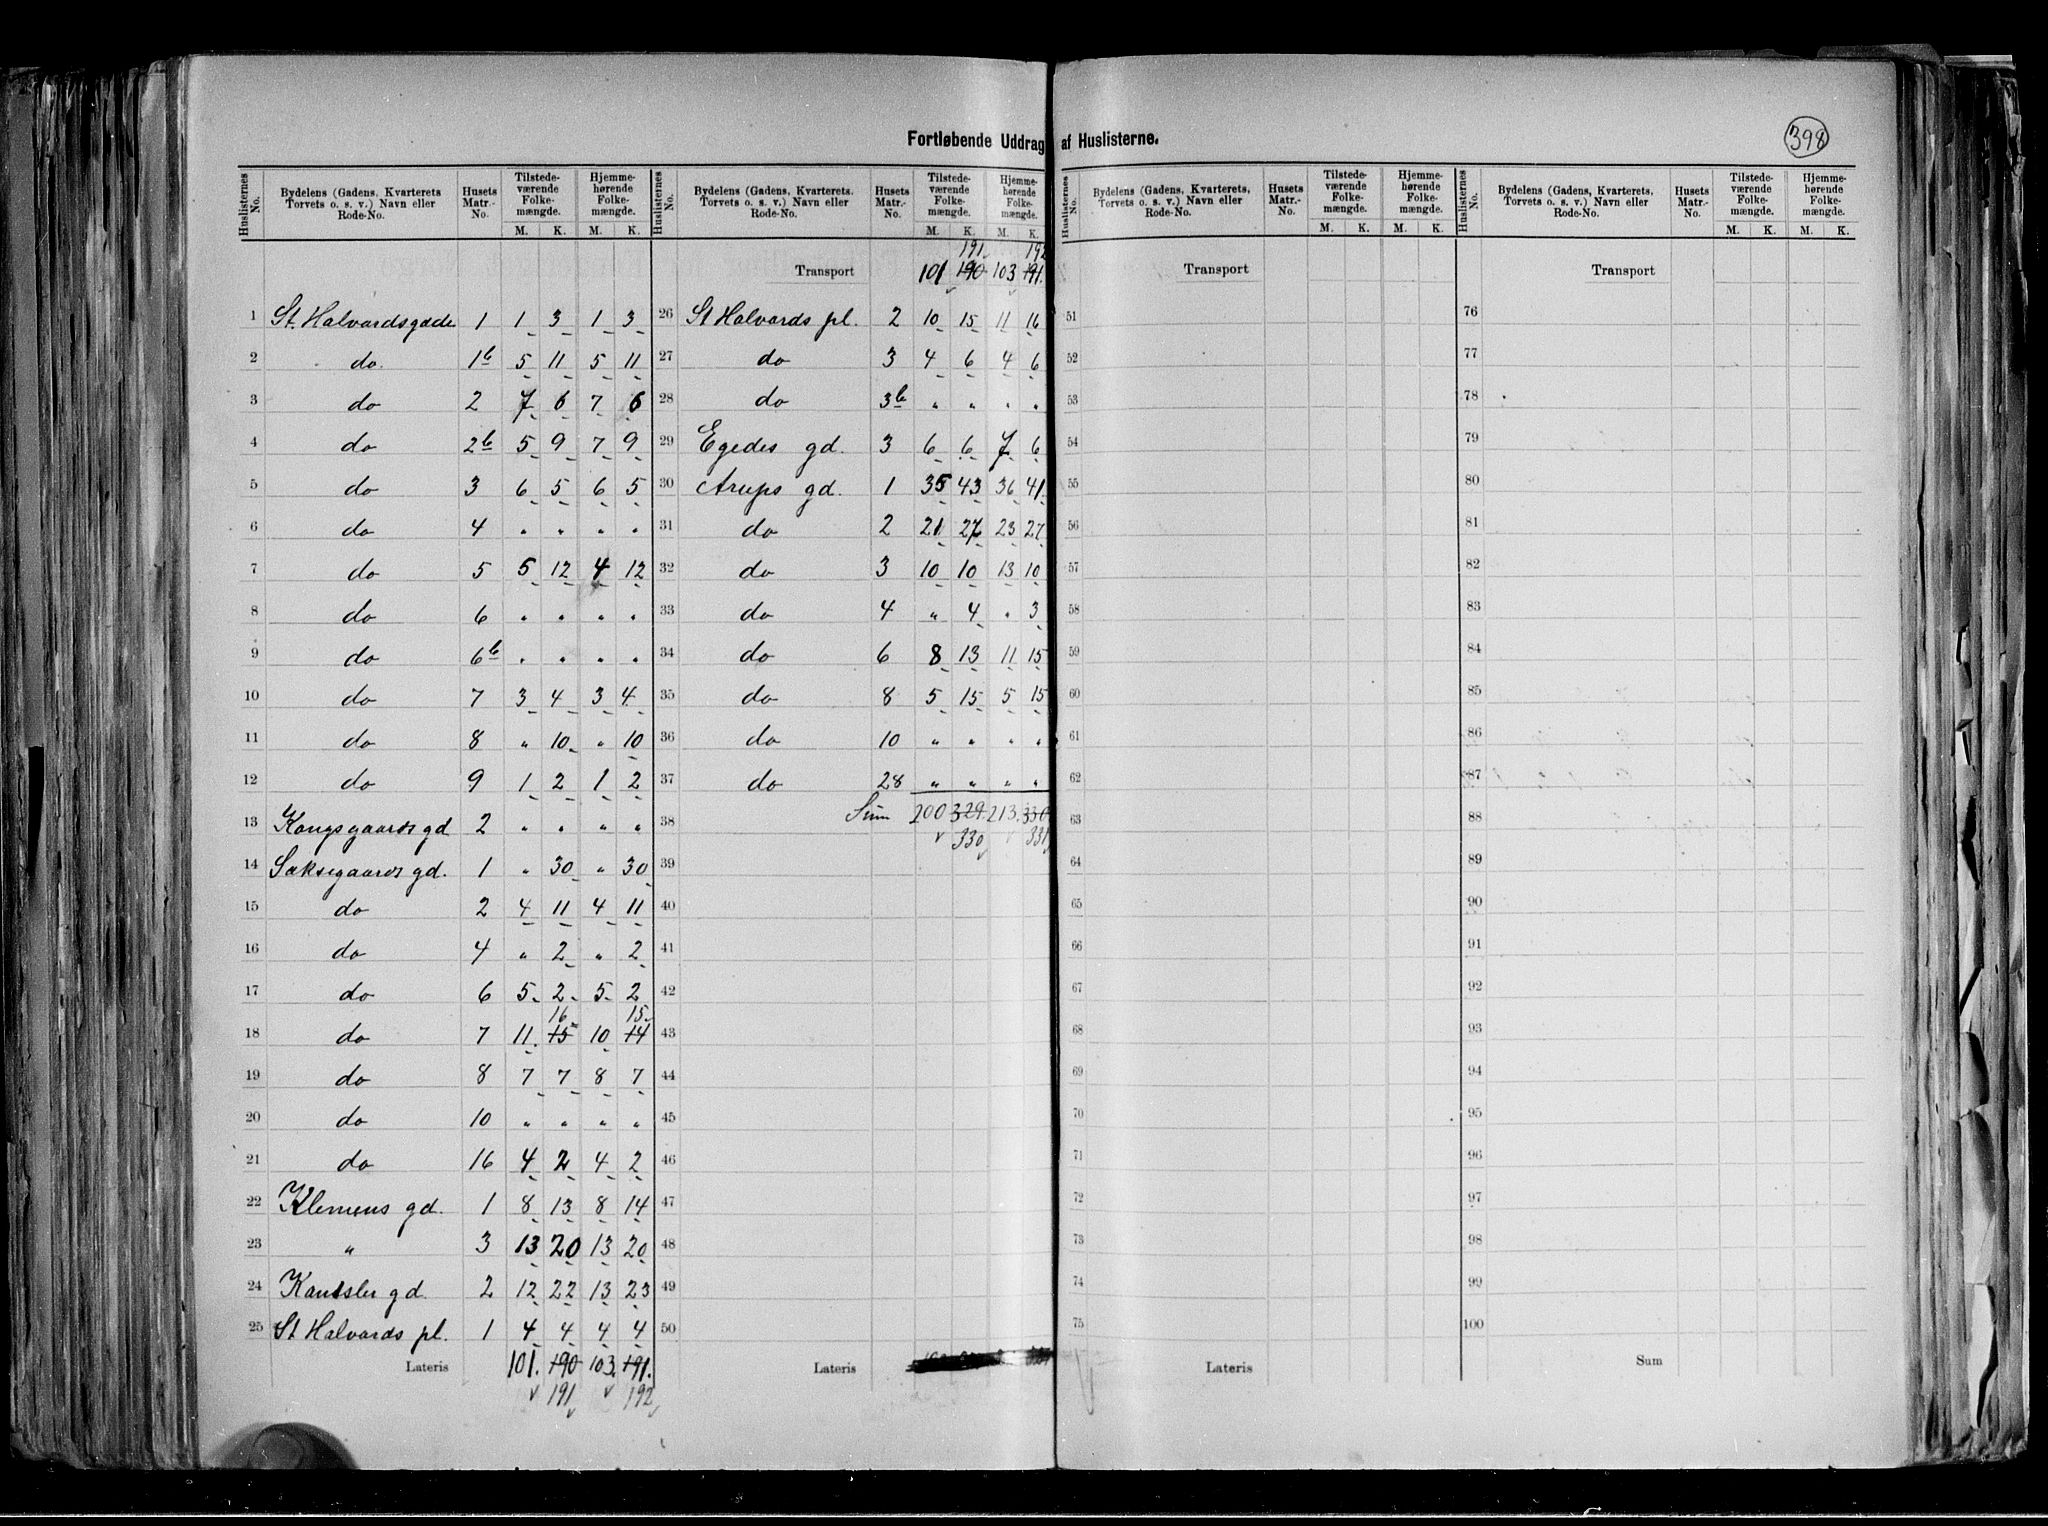 398
Fortløbende Uddrag af Huslisterne.
Huslisternes No. | Bydelens (Gadens, Kvarterets Torvets o. s. v.) Navn eller Rode-No. | Husets Matr.-No. | Tilstedeværende Folkemængde. M. K. | Hjemmehørende Folkemængde. M. K.
1 St. Halvardsgade 1 1 3 1 3
2 do. 1b 5 11 5 11
3 do 2 7 6 7 6
4 do 2b 5 9 7 9
5 do 3 6 5 6 5
6 do 4 " " " "
7 do 5 5 12 4 12
8 do 6 " " " "
9 do 6b " " " "
10 do 7 3 4 3 4
11 do 8 " 10 " 10
12 do 9 1 2 1 2
13 Kongsgaards gd 2 " " " "
14 Saksegaards gd. 1 " 30 " 30
15 do 2 4 11 4 11
16 do 4 " 2 " 2
17 do 6 5 2 5 2
16 15
18 do 7 11 15 10 14
19 do 8 7 7 8 7
20 do 10 " " " "
21 do 16 4 2 4 2
22 Klemens gd. 1 8 13 8 14
23 " 3 13 20 13 20
24 Kantsler gd. 2 12 22 13 23
25 St Halvards pl. 1 4 4 4 4
Lateris 101. 190 103. 191.
191 192
Huslisternes No. | Bydelens (Gadens, Kvarterets. Torvets o. s. v.) Navn eller Rode-No. | Husets Matr.-No. | Tilstedeværende Folkemængde. M. K. | Hjemmehørende Folkemængde. M. K.
191. 192
Transport 101 190 103 191.
26 St Halvards pl. 2 10 15 11 16
27 do 3 4 6 4 6
28 do 3b " " " "
29 Egedes gd. 3 6 6 7 6
30 Arups gd. 1 35 43 36 41
31 do 2 21 27 23 27
32 do 3 10 10 13 10
33 do 4 " 4 " 3
34 do 6 8 13 11 15
35 do 8 5 15 5 15
36 do 10 " " " "
37 do 28 " " " "
38 Sum 200 329 213. 330
330 331
39
40
41
42
43
44
45
46
47
48
49
50
Lateris
Huslisternes No. | Bydelens (Gadens, Kvarterets, Torvets o. s. v.) Navn eller Rode-No. | Husets Matr.-No. | Tilstedeværende Folkemængde. M. K. | Hjemmehørende Folkemængde. M. K.
Transport
51
52
53
54
55
56
57
58
59
60
61
62
63
64
65
66
67
68
69
70
71
72
73
74
75
Lateris
Huslisternes No. | Bydelens (Gadens, Kvarterets, Torvets o. s. v.) Navn eller Rode-No. | Husets Matr.-No. | Tilstedeværende Folkemængde. M. K. | Hjemmehørende Folkemængde. M. K.
Transport
76
77
78
79
80
81
82
83
84
85
86
87
88
89
90
91
92
93
94
95
96
97
98
99
100
Sum